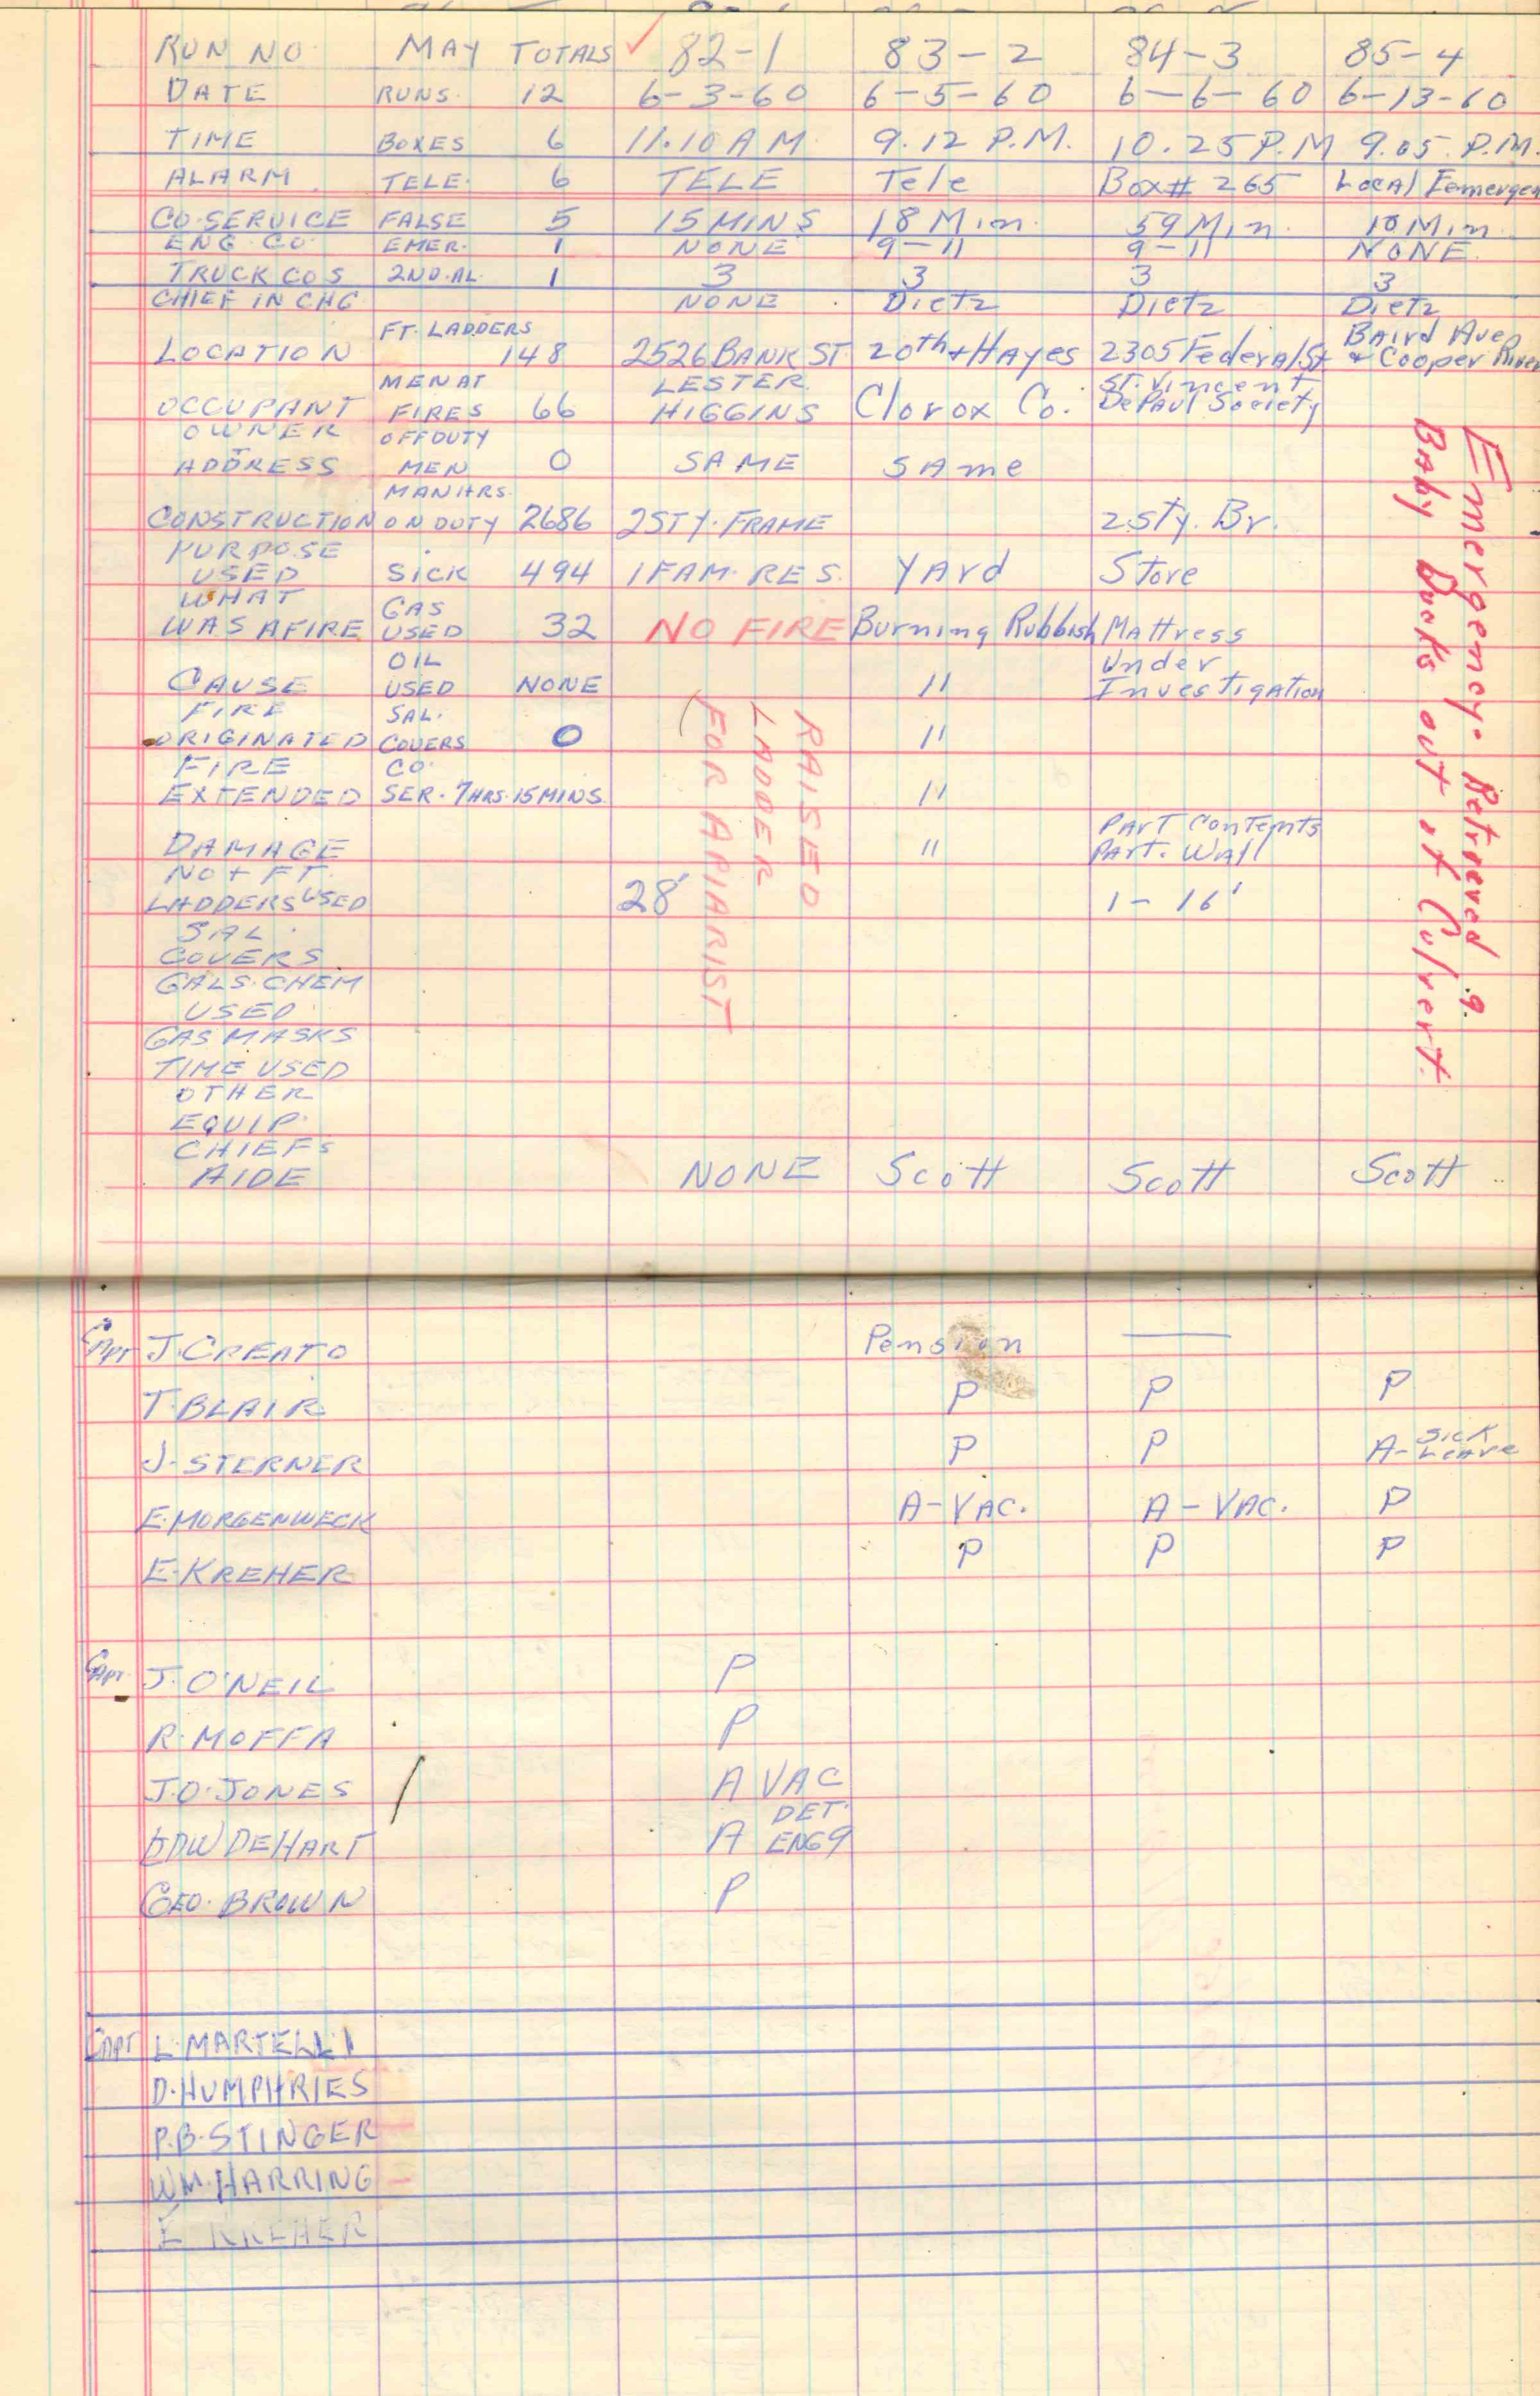 RUN NO. MAY TOTALS ✓ 82-1 83-2 84-3 85-4
DATE RUNS. 12 6-3-60 6-5-60 6-6-60 6-13-60
TIME BOXES 6 11.10 AM. 9.12 P.M. 10.25 P.M 9.05. P.M.
ALARM TELE. 6 TELE Tele Box# 265 Local Eemergen
CO. SERVICE FALSE 5 15 MINS 18 Min. 59 Min. 10 Min
ENG. CO. EMER. 1 NONE 9-11 9-11 NONE
TRUCK COS 2ND. AL. 1 3 3 3 3
CHIEF IN CHG NONE Dietz Dietz Dietz
FT. LADDERS Baird Ave
LOCATION 148 2526 BANK ST. 20th + HAyes 2305 Federal St + Cooper River
MEN AT LESTER. St. Vincent
OCCUPANT FIRES 66 HIGGINS Clorox Co. DePaul Society
OWNER OFF DUTY
ADDRESS MEN 0 SAME SAme
MAN HRS.
CONSTRUCTION ON DUTY 2686 2 STY. FRAME 2 Sty. Br.
PURPOSE
USED SICK 494 1 FAM. RES. YArd Store
WHAT GAS
WAS AFIRE USED 32 NO FIRE Burning Rubbish Mattress
OIL Under
CAUSE USED NONE " Investigation
FIRE SAL.
ORIGINATED COVERS 0 "
FIRE CO.
EXTENDED SER. 7 HRS. 15 MINS. "
PArt Contents
DAMAGE " PArt. WAll
NO + FT.
LADDERS USED 28' 1- 16'
SAL.
COVERS
GALS. CHEM
USED
GAS MASKS
TIME USED
OTHER
EQUIP.
CHIEFS
AIDE NONE Scott Scott Scott
RAISED
LADDER
FOR APIARIST
Emergency. Retrieved 9.
Baby Ducks out of Culvert.
Capt J. CREATO Pension —
T. BLAIR P P P
J. STERNER P P A- SICK LEAve
E. MORGENWECK A-VAC. A-VAC. P
E. KREHER P P P
Capt. J. O'NEIL P
R. MOFFA P
J.O. JONES A VAC
EDW DEHART A DET. ENG 9
GEO. BROWN P
CAPT L. MARTELLI
D. HUMPHRIES
P.B. STINGER
WM. HARRING
E KREHER